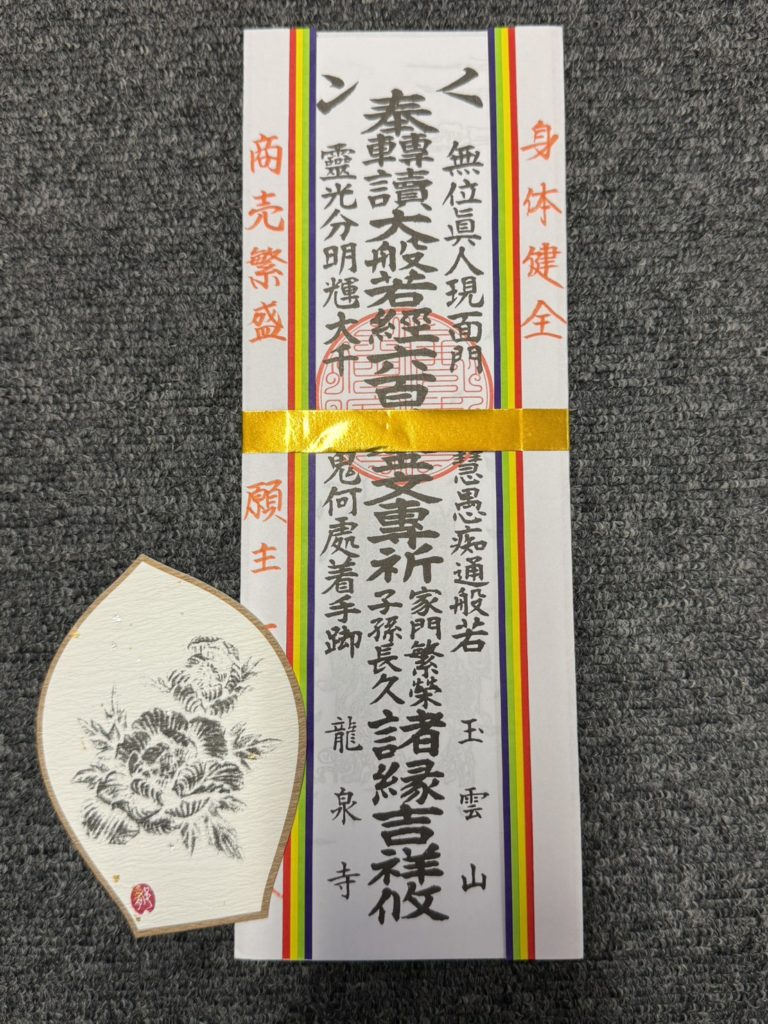 身体健全
無位眞人現面門
慧愚痴通般若
玉雲山
く
奉轉讀大般若經六百
文專祈
家門繁榮
子孫長久
諸縁吉祥攸
ン
靈光分明輝大千
鬼何處着手脚
龍泉寺
商売繁盛
願主